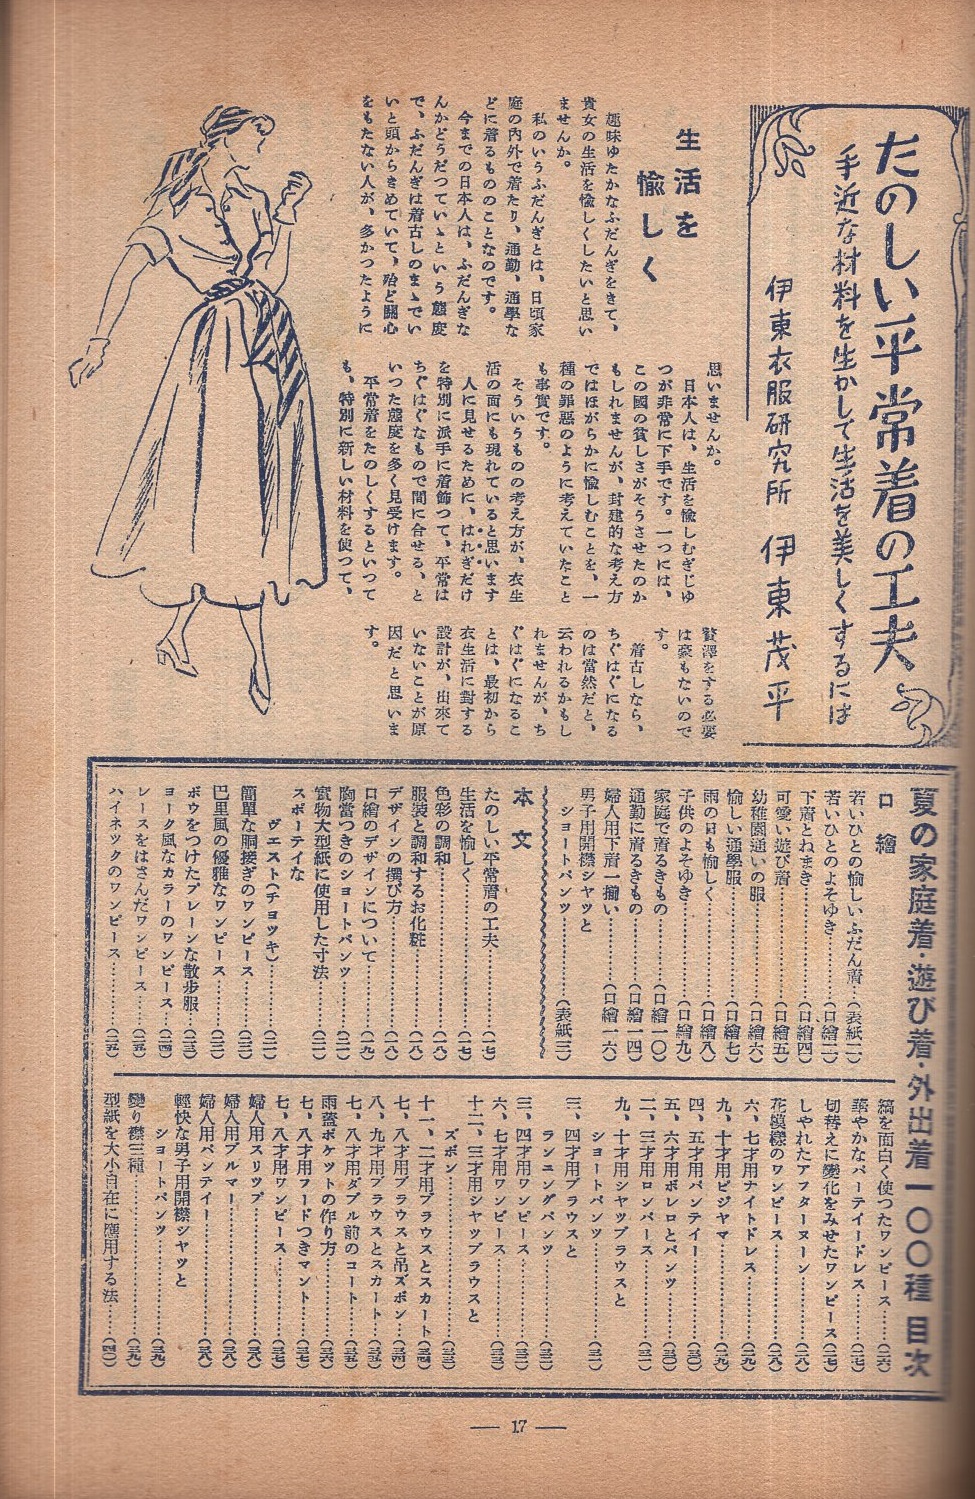 たのしい平常着の工夫
手近な材料を生かして生活を美しくするには
伊東衣服研究所 伊東茂平
生活を
愉しく
趣味ゆたかなふだんぎをきて、
貴女の生活を愉しくしたいと思い
ませんか。
私のいうふだんぎとは、日頃家
庭の内外で着たり、通勤、通學な
どに着るもののことなのです。
今までの日本人は、ふだんぎな
んかどうだつていゝという態度
で、ふだんぎは着古しのまゝでい
いと頭からきめていて、殆ど關心
をもたない人が、多かつたように
思いませんか。
日本人は、生活を愉しむぎじゆ
つが非常に下手です。一つには、
この國の貧しさがそうさせたのか
もしれませんが、封建的な考え方
ではほがらかに愉しむことを、一
種の罪惡のように考えていたこと
も事實です。
そういうものの考え方が、衣生
活の面にも現れていると思います
人に見せるために、はれぎだけ
を特別に派手に着飾つて、平常は
ちぐはぐなもので間に合せる、と
いつた態度を多く見受けます。
平常着をたのしくするといつて
も、特別に新しい材料を使つて、
贅澤をする必要
は豪もないので
す。
着古しなら、
ちぐはぐになる
のは當然だと、
云われるかもし
れませんが、ち
ぐはぐになるこ
とは、最初から
衣生活に對する
設計が、出來て
いないことが原
因だと思いま
す。
夏の家庭着・遊び着・外出着一〇〇種 目次
口繪
若いひとの愉しいふだん着…(表紙二)
若いひとのよそゆき…………(口繪二)
下着とねまき…………(口繪四)
可愛い遊び着…………(口繪五)
幼稚園通いの服…………(口繪六)
愉しい通學服…………(口繪七)
雨の日も愉しく…………(口繪八)
子供のよそゆき…………(口繪九)
家庭で着るきもの…………(口繪一〇)
通勤に着るきもの…………(口繪一四)
婦人用下着一揃い…………(口繪一六)
男子用開襟シヤツと
シヨートパンツ…………(表紙三)
本文
たのしい平常着の工夫…………(一七)
生活を愉しく…………(一七)
色彩の調和…………(一八)
服裝と調和するお化粧…………(一八)
デザインの撰び方…………(一八)
口繪のデザインについて…………(一九)
胸當つきのシヨートパンツ…………(二一)
實物大型紙に使用した寸法…………(二一)
スポーテイな
ヴエスト(チヨツキ)…………(二二)
簡單な胴接ぎのワンピース…………(二三)
巴里風の優雅なワンピース…………(二三)
ボウをつけたプレーンな散歩服…(二三)
ヨーク風なカラーのワンピース…(二四)
レースをはさんだワンピース……(二五)
ハイネツクのワンピース…………(二五)
縞を面白く使つたワンピース……(二六)
華やかなパーテイードレス………(二七)
切替えに變化をみせたワンピース(二七)
しやれたアフターヌーン…………(二八)
花模樣のワンピース…………(二八)
六、七才用ナイトドレス…………(二九)
九、十才用ピジヤマ…………(二九)
四、五才用パンテイー…………(三〇)
五、六才用ボレロとパンツ………(三〇)
二、三才用ロンパース…………(三一)
九、十才用シヤツブラウスと
シヨートパンツ…………(三一)
三、四才用ブラウスと
ランニングパンツ…………(三二)
三、四才用ワンピース…………(三二)
六、七才用ワンピース…………(三三)
十二、三才用シヤツブラウスと
ズボン…………(三三)
十一、二才用ブラウスとスカート(三四)
七、八才用ブラウスと吊ズボン…(三四)
八、九才用ブラウスとスカート…(三五)
七、八才用ダブル前のコート……(三五)
雨蓋ポケツトの作り方…………(三六)
七、八才用フードつきマント……(三七)
七、八才用ワンピース…………(三七)
婦人用スリツプ…………(三八)
婦人用ブルマー…………(三八)
婦人用パンテイー…………(三八)
輕快な男子用開襟シヤツと
シヨートパンツ…………(三九)
變り襟三種…………(三九)
型紙を大小自在に應用する法……(四〇)
— 17 —